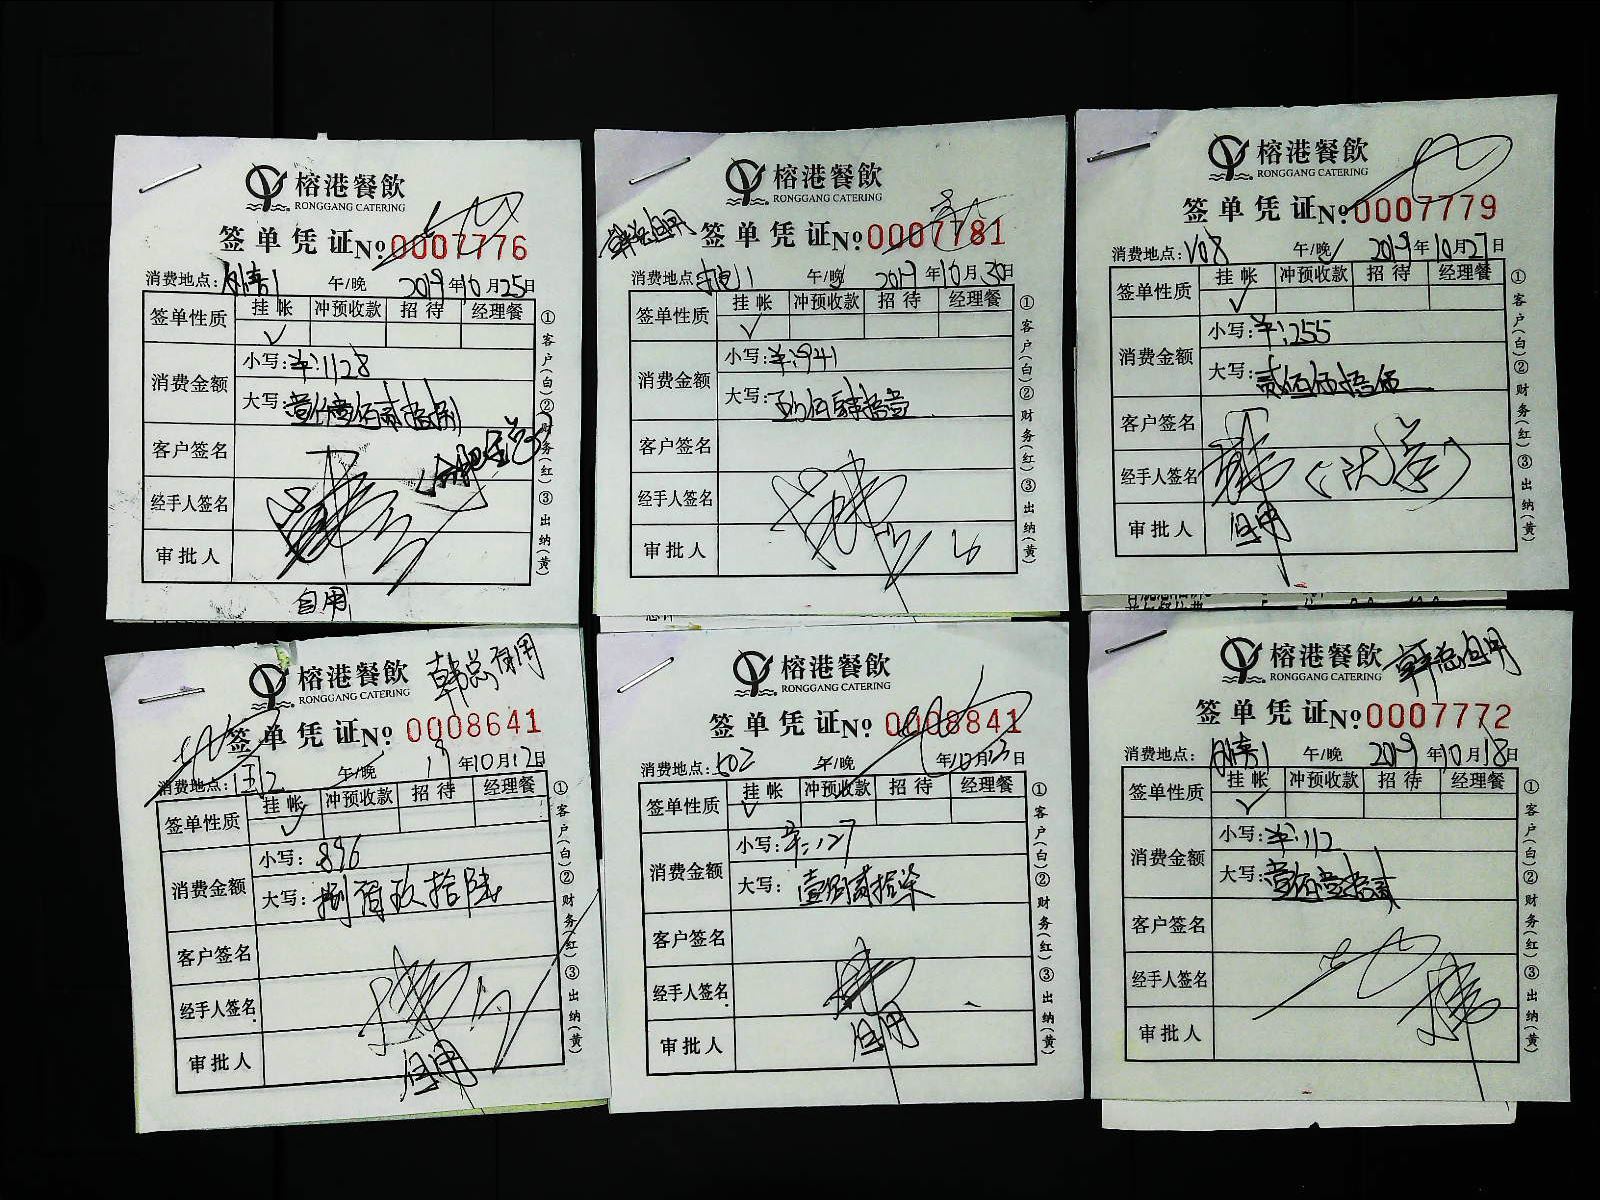 榕港餐飲
RONGGANG CATERING
签单凭证 No 0007776
消费地点: 午/晚 2019年10月25日
签单性质 挂帐 冲预收款 招待 经理餐
✓
消费金额 小写:¥:1128
大写:壹仟壹佰贰拾捌
客户签名
经手人签名
审批人
自用
①客户(白)②财务(红)③出纳(黄)
榕港餐飲
RONGGANG CATERING
韩总自用
签单凭证 No 0007781
消费地点: 午/晚 2019年10月30日
签单性质 挂帐 冲预收款 招待 经理餐
✓
消费金额 小写:¥:941
大写:玖佰肆拾壹
客户签名
经手人签名
审批人
①客户(白)②财务(红)③出纳(黄)
榕港餐飲
RONGGANG CATERING
签单凭证 No 0007779
消费地点:V08 午/晚 2019年10月27日
签单性质 挂帐 冲预收款 招待 经理餐
✓
消费金额 小写:¥:255
大写:贰佰伍拾伍
客户签名
经手人签名 韩(沈总)
审批人 自用
①客户(白)②财务(红)③出纳(黄)
榕港餐飲
RONGGANG CATERING
韩总自用
签单凭证 No 0008641
消费地点: 午/晚 19年10月12日
签单性质 挂帐 冲预收款 招待 经理餐
✓
消费金额 小写:896
大写:捌佰玖拾陆
客户签名
经手人签名
审批人 自用
①客户(白)②财务(红)③出纳(黄)
榕港餐飲
RONGGANG CATERING
签单凭证 No 0008841
消费地点:502 午/晚 年10月23日
签单性质 挂帐 冲预收款 招待 经理餐
✓
消费金额 小写:¥:127
大写:壹佰贰拾柒
客户签名
经手人签名
审批人 自用
①客户(白)②财务(红)③出纳(黄)
榕港餐飲
RONGGANG CATERING
韩总自用
签单凭证 No 0007772
消费地点: 午/晚 2019年10月18日
签单性质 挂帐 冲预收款 招待 经理餐
✓
消费金额 小写:¥:112
大写:壹佰壹拾贰
客户签名
经手人签名
审批人
①客户(白)②财务(红)③出纳(黄)